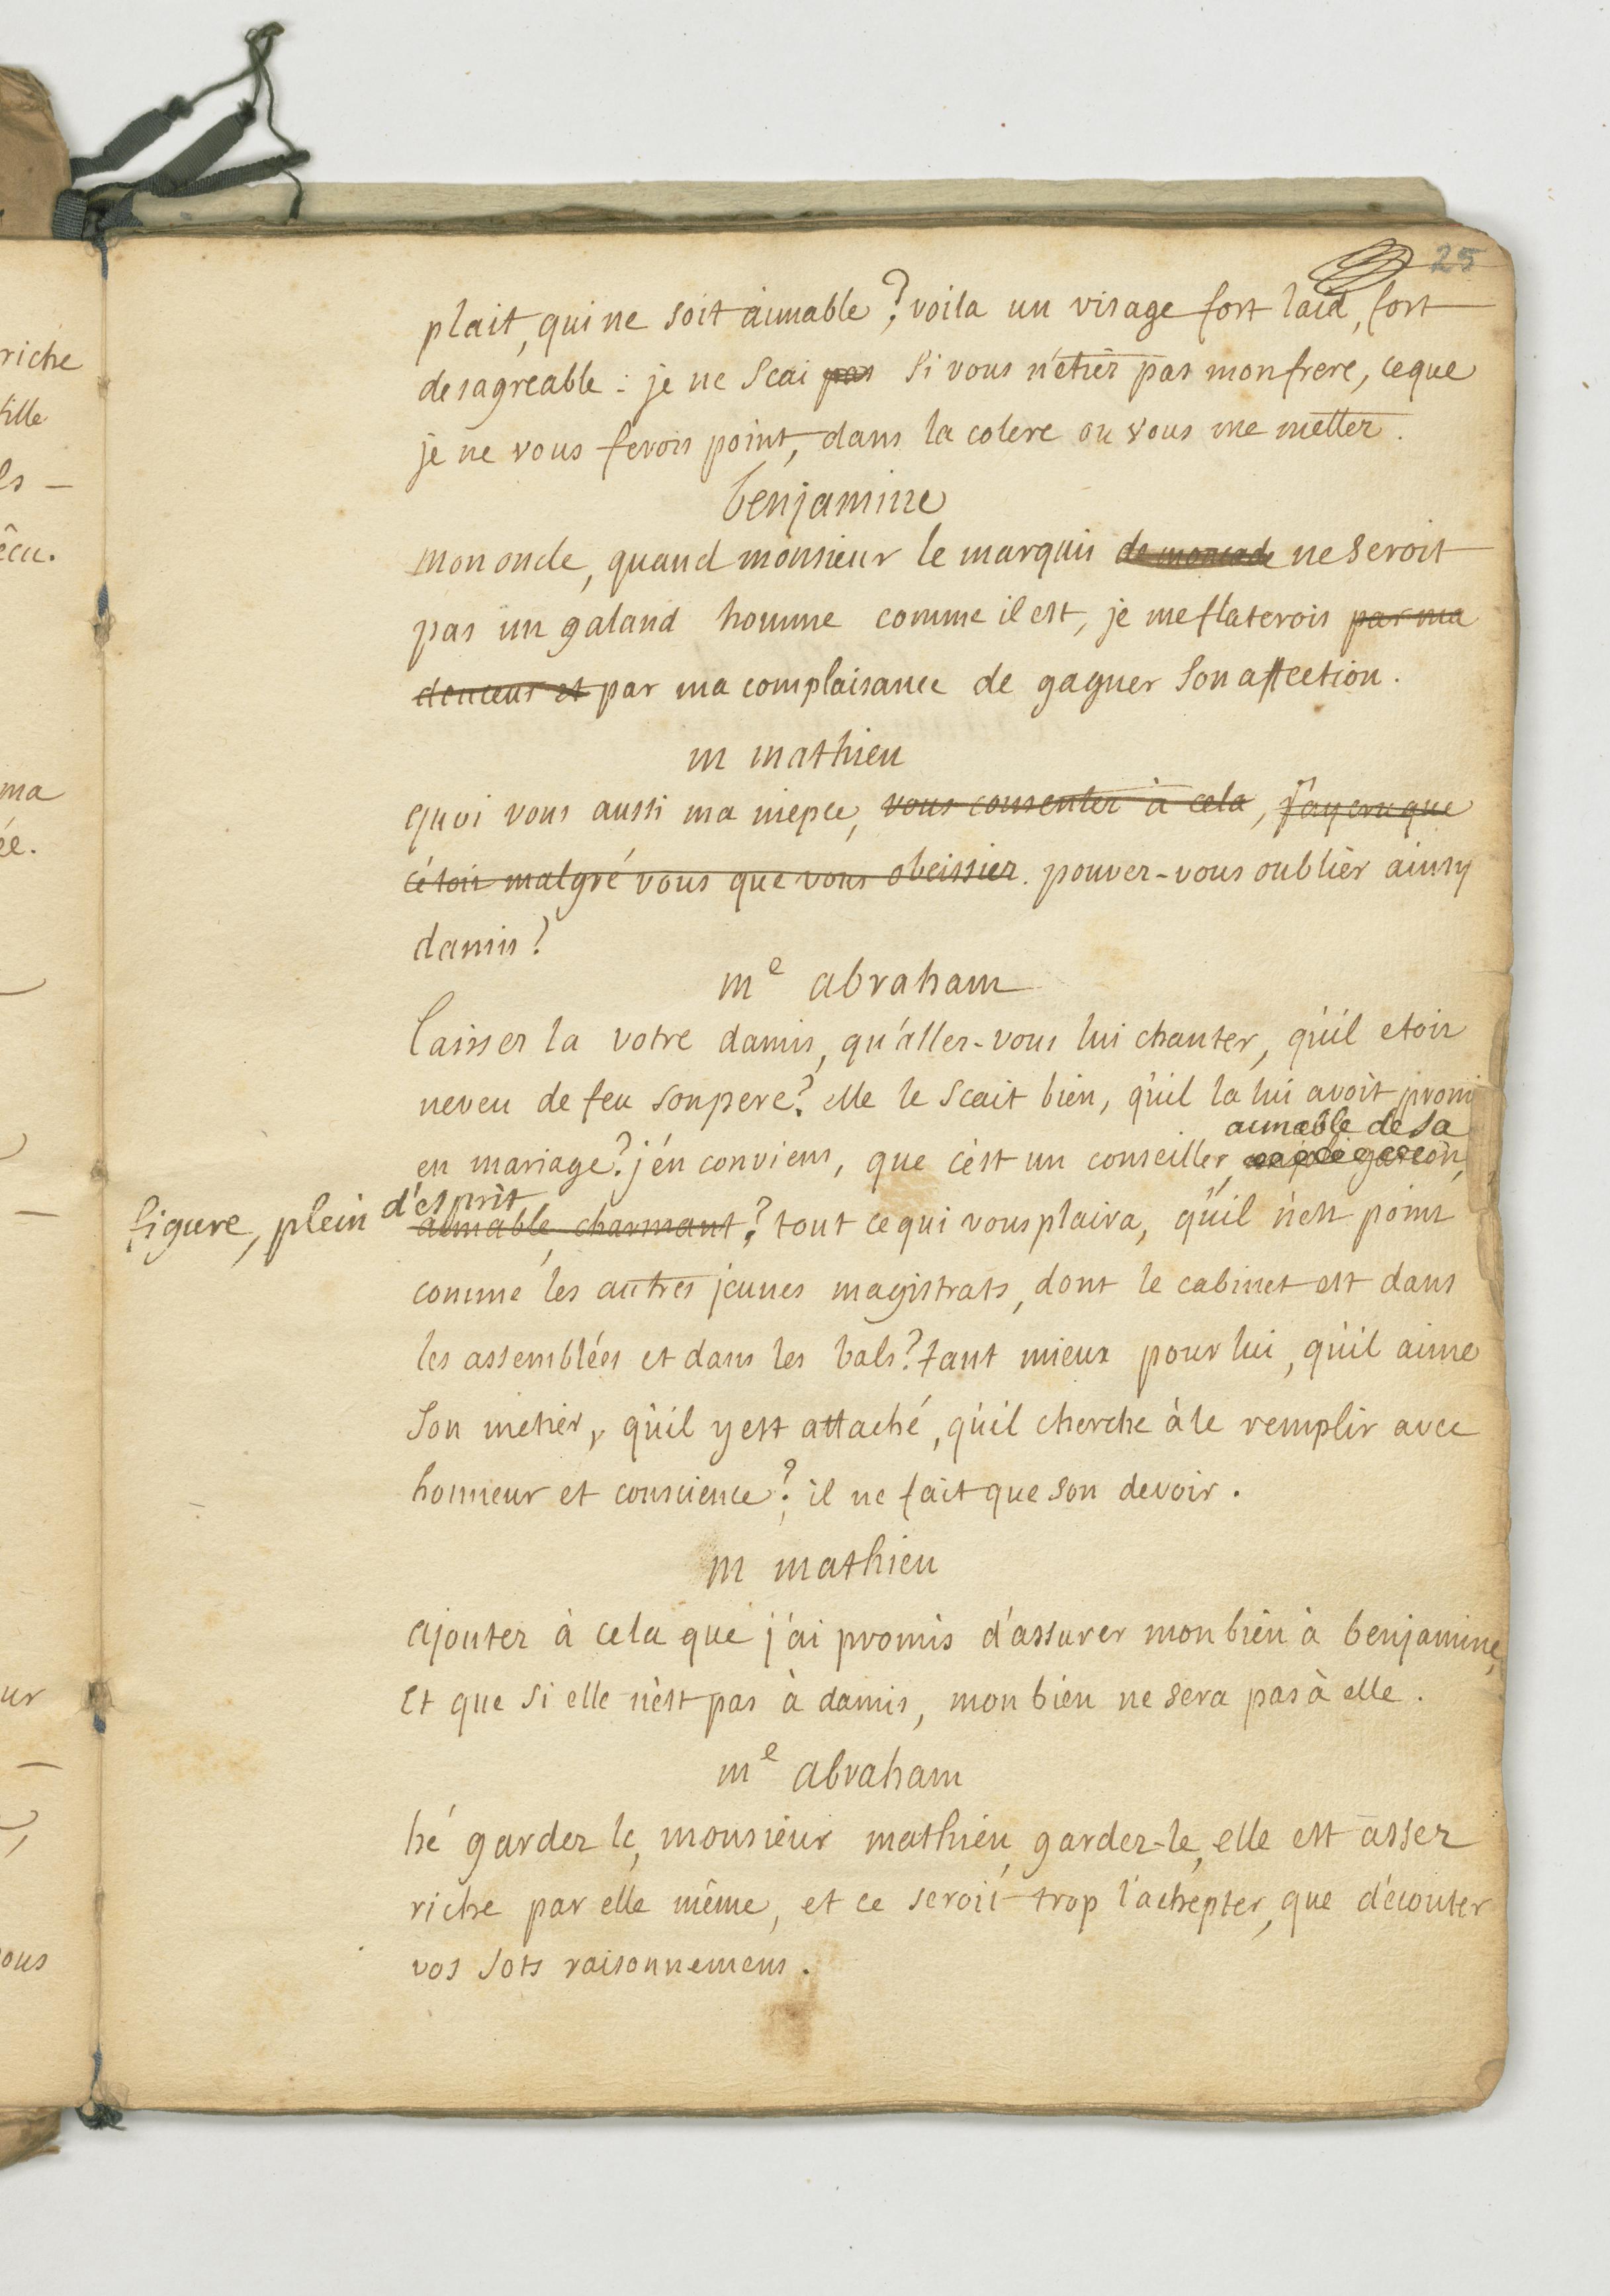 25
riche
fille
ls –
écu.
ma
ée.
ur
ous
plait, qui ne soit aimable? voila un visage fort laid, fort
desagreable: je ne scai pas si vous n'étiez pas mon frere, ce que
je ne vous ferois point, dans la colere ou vous me mettez.
benjamine
mon oncle, quand monsieur le marquis de moncade ne seroit
pas un galand homme comme il est, je me flaterois par ma
douceur et par ma complaisance de gagner son affection.
m mathieu
quoi vous aussi ma niepce, vous consentez à cela, j'ay cru que
c'étoit malgré vous que vous obeissiez. pouvez-vous oublier ainsy
damis?
me abraham
laissez la votre damis, qu'allez-vous lui chanter, qu'il etoit
neveu de feu son pere? elle le scait bien, qu'il la lui avoit promi
en mariage? j'en conviens, que c'est un conseiller, un joli garcon,
aimable de sa
figure, plein d'esprit
aimable, charmant? tout ce qui vous plaira, qu'il n'est point
comme les autres jeunes magistrats, dont le cabinet est dans
les assemblées et dans les bals? tant mieux pour lui, qu'il aime
son metier, qu'il y est attaché, qu'il cherche à le remplir avec
honneur et conscience? il ne fait que son devoir.
m mathieu
ajoutez à cela que j'ai promis d'assurer mon bien à benjamine,
et que si elle n'est pas à damis, mon bien ne sera pas à elle.
me abraham
hé gardez le, monsieur mathieu, gardez-le, elle est assez
riche par elle même, et ce seroit trop l'achepter, que d'écouter
vos sots raisonnemens.